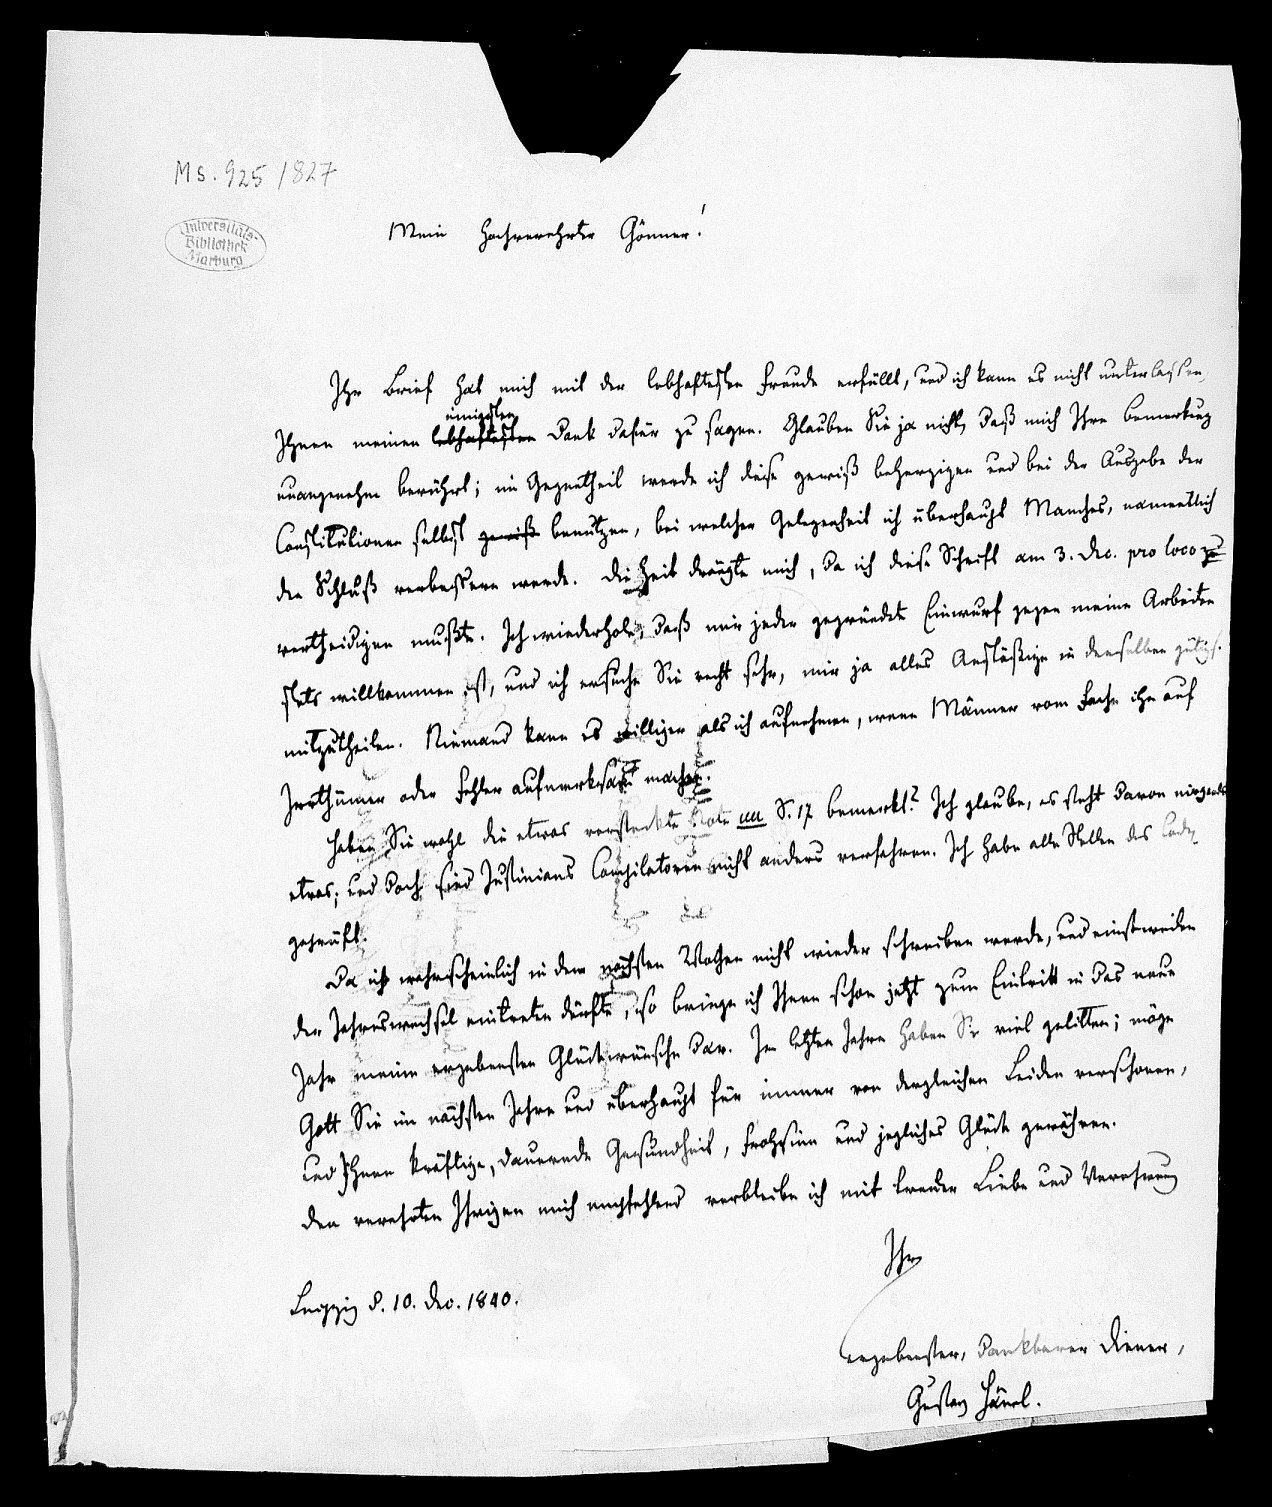 Ms. 925/827
Universitäts-
Bibliothek
Marburg
Mein hochverehrter Gönner!
Ihr Brief hat mich mit der lebhaftesten Freude erfüllt, und ich kann es nicht unterlassen,
innigsten
Ihnen meinen lebhaftesten Dank dafür zu sagen. Glauben Sie ja nicht, daß mich Ihre Bemerkung
unangenehm berührt; im Gegentheil werde ich diese gewiß beherzigen und bei der Ausgabe der
Constitutionen selbst gewiß benutzen, bei welcher Gelegenheit ich überhaupt Manches, namentlich
den Schluß verbessern werde. Die Zeit drängte mich, da ich diese Schrift am 3. Dec. pro loco zu
vertheidigen mußte. Ich wiederhole, daß mir jeder gegründete Einwurf gegen meine Arbeiten
stets willkommen ist, und ich ersuche Sie recht sehr, mir ja alles Anstößige in denselben gütigst
mitzutheilen. Niemand kann es williger als ich aufnehmen, wenn Männer vom Fache ihn auf
Irrthümer oder Fehler aufmerksam machen.
Haben Sie wohl die etwas versteckte Note uu S. 17 bemerkt? Ich glaube, es steht davon nirgends
etwas; und doch sind Justinians Compilatoren nicht anders verfahren. Ich habe alle Stellen des Codex
geprüft.
Da ich wahrscheinlich in den nächsten Wochen nicht wieder schreiben werde, und einstweilen
der Jahreswechsel eintreten dürfte, so bringe ich Ihnen schon jetzt zum Eintritt in das neue
Jahr meine ergebensten Glückwünsche dar. Im letzten Jahre haben Sie viel gelitten; möge
Gott Sie im nächsten Jahre und überhaupt für immer von dergleichen Leiden verschonen,
und Ihnen kräftige, dauernde Gesundheit, Frohsinn und jegliches Glück gewähren.
Den verehrten Ihrigen mich empfehlend verbleibe ich mit treuer Liebe und Verehrung
Ihr
Leipzig d. 10. Dec. 1840.
ergebenster, dankbarer Diener,
Gustav Hänel.